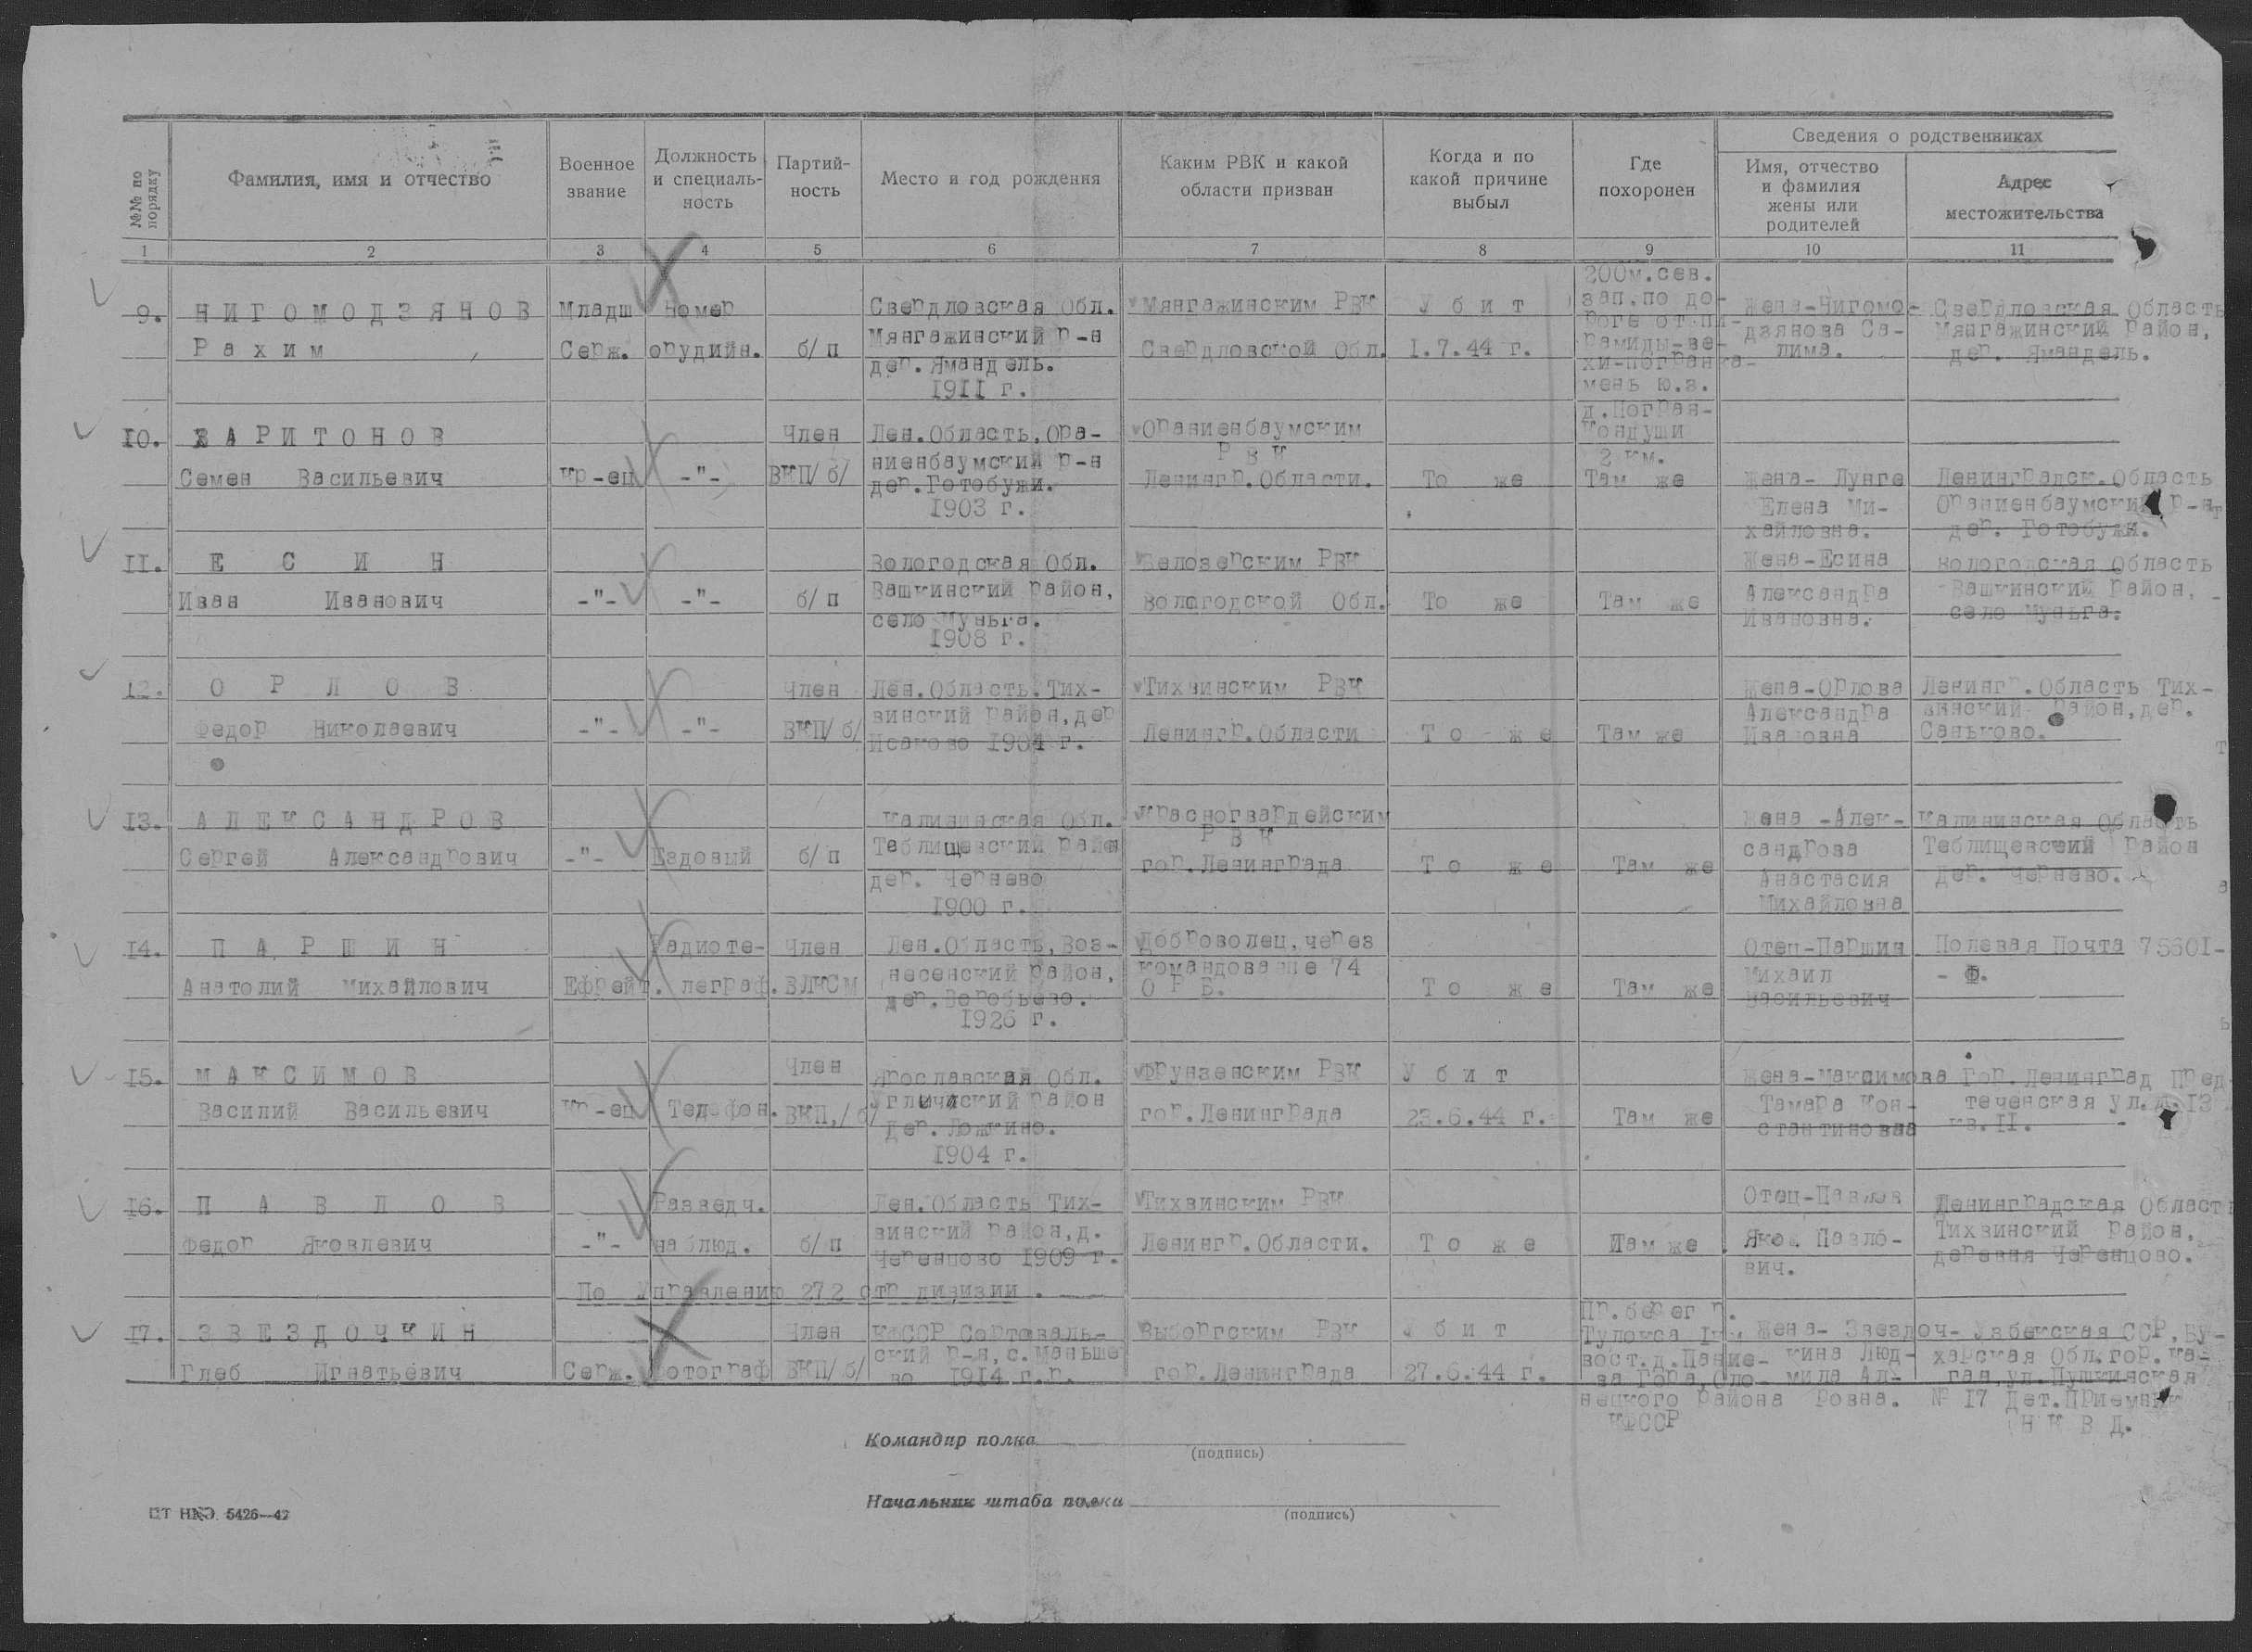 №№ по порядку
Фамилия, имя и отчество
Военное звание
Должность и специаль-ность
Партий-ность
Место и год рождения
Каким РВК и какой области призван
Когда и по какой причине выбыл
Где похоронен
Сведения о родственниках
Имя, отчество и фамилия жены или родителей
Адрес местожительства
1 2 3 4 5 6 7 8 9 10 11
9. НИГОМОДЗЯНОВ
Рахим
Младш Серж.
номер орудийн.
б/п
Свердловская Обл.
Мянгажинский р-н
дер. Ямандель.
1911 г.
Мянгажинским РВК
Свердловской Обл.
Убит
1.7.44 г.
200м.сев.
зап.по до-
роге от пи-
рамиды-ве-
хи-погранка-
мень ю.з.
д.Погран-
кондуши
2 км.
Жена-Нигомо-
дзянова Са-
лима.
Свердловская Область
Мянгажинский район,
дер. Ямандель.
10. ХАРИТОНОВ
Семен Васильевич
кр-ец
-"-
Член
ВКП/б/
Лен.Область, Ора-
ниенбаумский р-н
дер.Готобужи.
1903 г.
Ораниенбаумским
РВК
Ленингр.Области.
То же
Там же
Жена- Лунге
Елена Ми-
хайловна.
Ленинградск.Область
Ораниенбаумский р-н
дер. Готобужи.
11. ЕСИН
Иван Иванович
-"-
-"-
б/п
Вологодская Обл.
Вашкинский район,
село Муньга.
1908 г.
Белозерским РВК
Вологодской Обл.
То же
Там же
Жена-Есина
Александра
Ивановна.
Вологодская Область
Вашкинский район,
село Муньга.
12. ОРЛОВ
Федор Николаевич
-"-
-"-
Член
ВКП/б/
Лен.Область.Тих-
винский район,дер
Исаково 1904 г.
Тихвинским РВК
Ленингр.Области
То же
Там же
Жена-Орлова
Александра
Ивановна
Ленингр.Область Тих-
винский район,дер.
Саньково.
13. АЛЕКСАНДРОВ
Сергей Александрович
-"-
Ездовый
б/п
Калининская Обл.
Таблищевский район
дер. Чернево
1900 г.
Красногвардейским
РВК
гор.Ленинграда
То же
Там же
Жена -Алек-
сандрова
Анастасия
Михайловна
Калининская Область
Теблищевский район
дер. Чернево.
14. ПАРШИН
Анатолий Михайлович
Ефрейт.
Радиоте-
леграф.
Член
ВЛКСМ
Лен.Область,Воз-
несенский район,
дер.Воробьево.
1926 г.
Доброволец,через
командование 74
ОРБ.
То же
Там же
Отец-Паршин
Михаил
Васильевич
Полевая Почта 75601-
- Ф.
15. МАКСИМОВ
Василий Васильевич
Кр-ец
Телефон.
Член
ВКП,/б/
Ярославская Обл.
Угличиский район
дер. Ложкино.
1904 г.
Фрунзенским РВК
гор.Ленинграда
Убит
23.6.44 г.
Там же
Жена-Максимова
Тамара Кон-
стантиновна
Гор.Ленинград Пред
теченская ул.д.13
кв.11.
16. ПАВЛОВ
Федор Яковлевич
-"-
Разведч.
наблюд.
б/п
Лен.Область Тих-
винский район,д.
Черенцово 1909 г.
Тихвинским РВК
Ленингр.Области.
То же
Там же
Отец-Павлов
Яков Павло-
вич.
Ленинградская Область
Тихвинский район,
деревня Черенцово.
По Управлению 272 стр дивизии .
17. ЗВЕЗДОЧКИН
Глеб Игнатьевич
Серж.
Фотограф
Член
ВКП/б/
КФССР Сортоваль-
ский р-н,с.Маньше
во 1914 г.р.
Выборгским РВК
гор.Ленинграда
Убит
27.6.44 г.
Пр.берег р.
Тулокса 1км
вост.д.Пание-
ва Гора,Оло-
нецкого района
КФССР
Жена- Звездоч-
кина Люд-
мила Ал-
ровна.
Узбекская ССР,Бу-
харская Обл.гор.Ка-
ган,ул.Пушкинская
№ 17 Дет.Приемник
НКВД.
Командир полка
(подпись)
Начальник штаба полка
(подпись)
ПТ НКО 5426—42